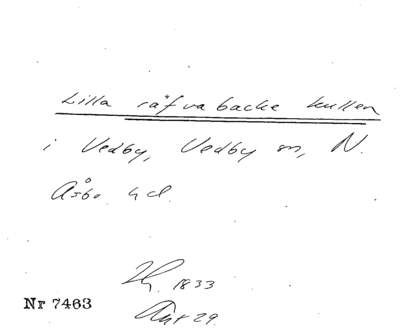 Lilla räfvabacke kullen
i Vedby, Vedby sn, N.
Åsbo hd.
1833
Nr 7463
Akt 29